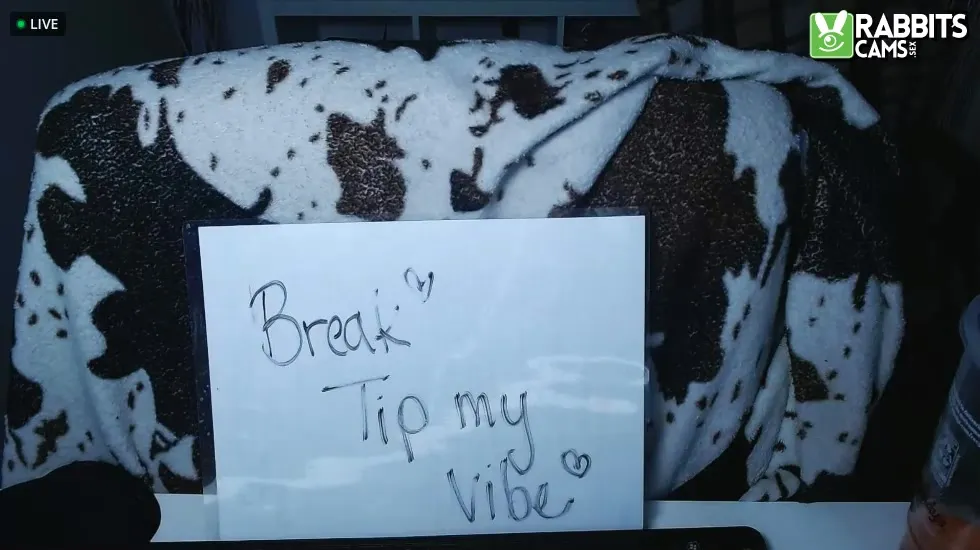 LIVE
RABBITS
CAMS.SEX
Break
Tip my
Vibe